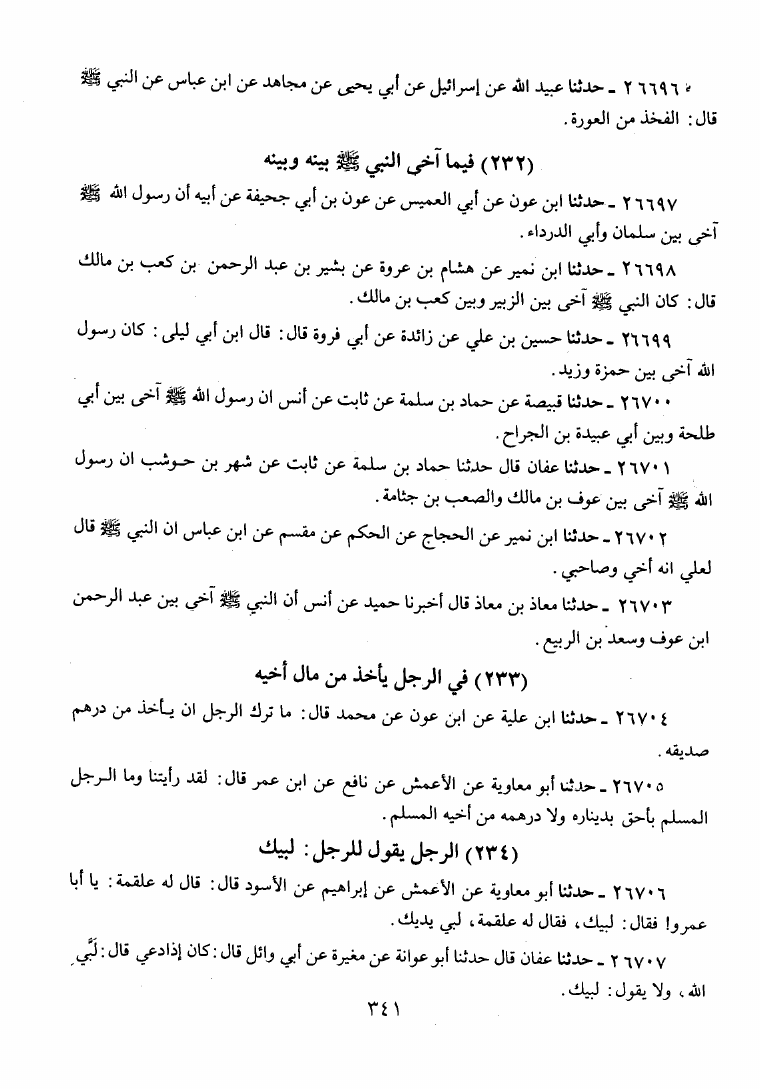 ٢٦٦٩٦ - حدثنا عبيد الله عن إسرائيل عن أبي يحيى عن مجاهد عن ابن عباس عن النبي ﷺ
قال: الفخذ من العورة.
(٢٣٢) فيما آخى النبي ﷺ بينه وبينه
٢٦٦٩٧ - حدثنا ابن عون عن أبي العميس عن عون بن أبي جحيفة عن أبيه أن رسول الله ﷺ
آخى بين سلمان وأبي الدرداء.
٢٦٦٩٨ - حدثنا ابن نمير عن هشام بن عروة عن بشير بن عبد الرحمن بن كعب بن مالك
قال: كان النبي ﷺ آخى بين الزبير وبين كعب بن مالك.
٢٦٦٩٩ - حدثنا حسين بن علي عن زائدة عن أبي فروة قال: قال ابن أبي ليلى: كان رسول
الله آخى بين حمزة وزيد.
٢٦٧٠٠ - حدثنا قبيصة عن حماد بن سلمة عن ثابت عن أنس ان رسول الله ﷺ آخى بين أبي
طلحة وبين أبي عبيدة بن الجراح.
٢٦٧٠١ - حدثنا عفان قال حدثنا حماد بن سلمة عن ثابت عن شهر بن حوشب ان رسول
الله ﷺ آخى بين عوف بن مالك والصعب بن جثامة.
٢٦٧٠٢ - حدثنا ابن نمير عن الحجاج عن الحكم عن مقسم عن ابن عباس ان النبي ﷺ قال
لعلي انه أخي وصاحبي.
٢٦٧٠٣ - حدثنا معاذ بن معاذ قال أخبرنا حميد عن أنس أن النبي ﷺ آخى بين عبد الرحمن
ابن عوف وسعد بن الربيع.
(٢٣٣) في الرجل يأخذ من مال أخيه
٢٦٧٠٤ - حدثنا ابن علية عن ابن عون عن محمد قال: ما ترك الرجل ان يأخذ من درهم
صديقه.
٢٦٧٠٥ - حدثنا أبو معاوية عن الأعمش عن نافع عن ابن عمر قال: لقد رأيتنا وما الرجل
المسلم بأحق بديناره ولا درهمه من أخيه المسلم.
(٢٣٤) الرجل يقول للرجل: لبيك
٢٦٧٠٦ - حدثنا أبو معاوية عن الأعمش عن إبراهيم عن الأسود قال: قال له علقمة: يا أبا
عمرو! فقال: لبيك، فقال له علقمة، لبي يديك.
٢٦٧٠٧ - حدثنا عفان قال حدثنا أبو عوانة عن مغيرة عن أبي وائل قال: كان إذا دعي قال: لَبَّي
الله، ولا يقول: لبيك.
٣٤١